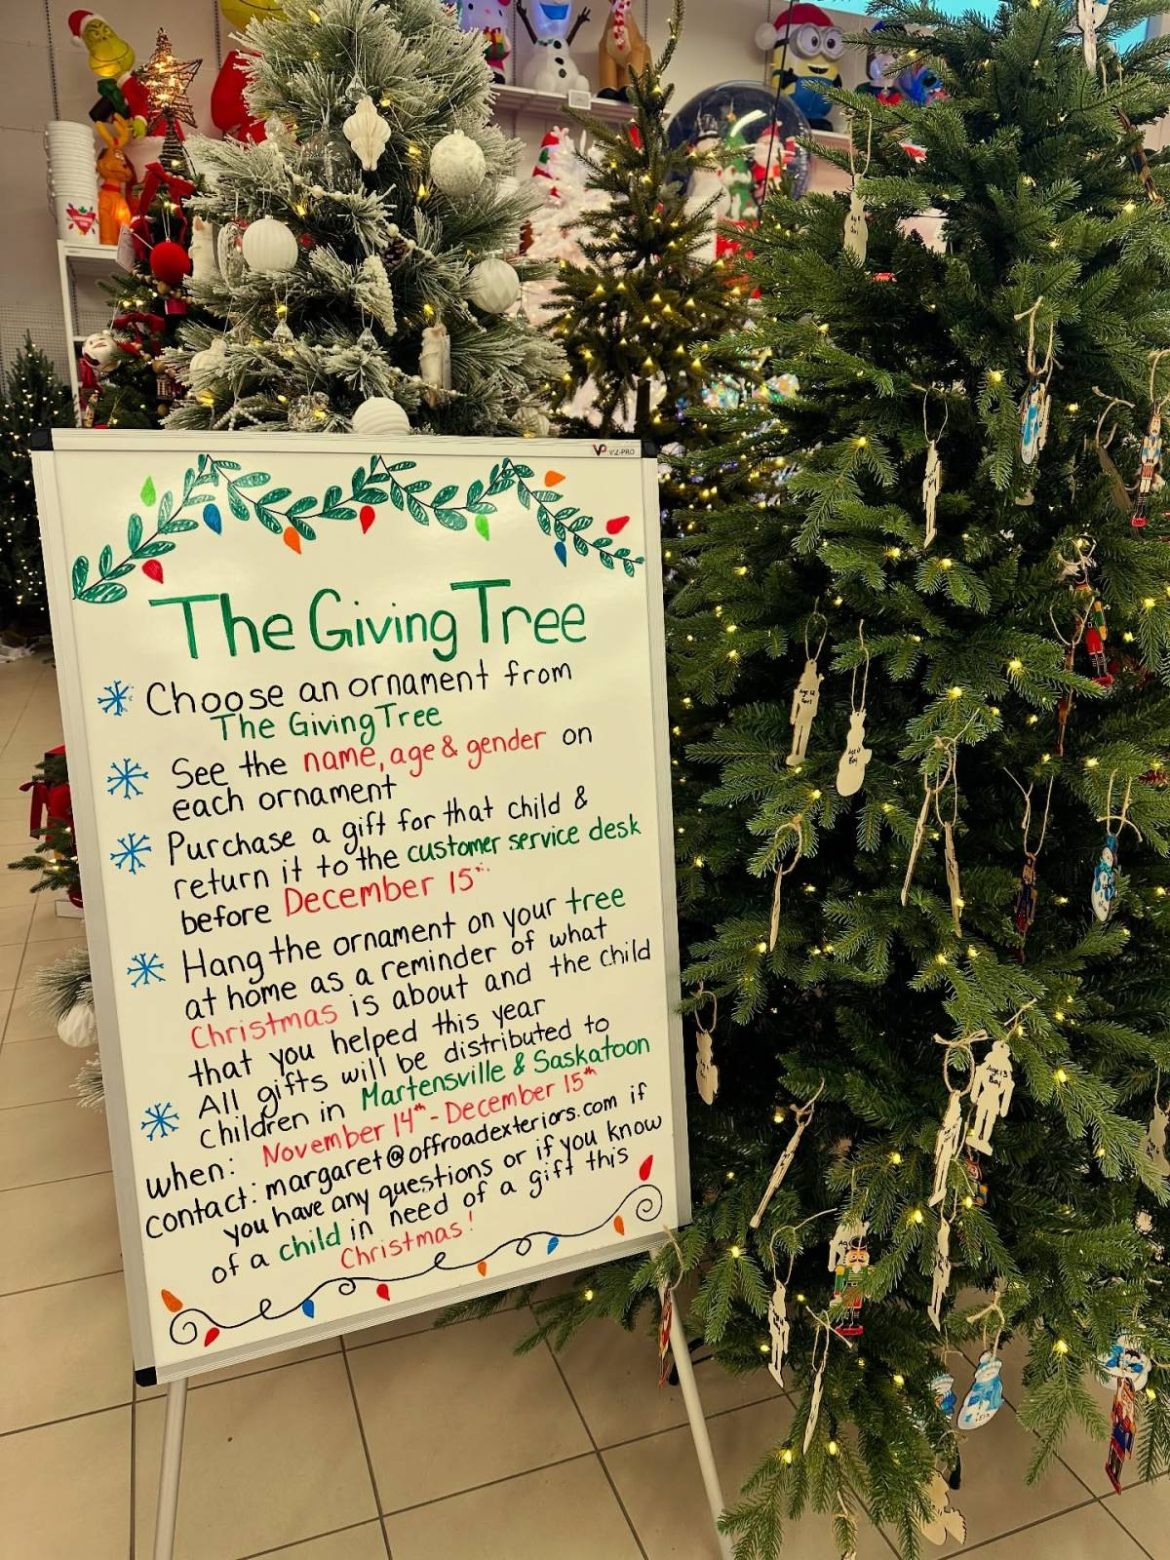 VIZ-PRO
The Giving Tree
Choose an ornament from
The Giving Tree
See the name, age & gender on
each ornament
Purchase a gift for that child &
return it to the customer service desk
before December 15th
Hang the ornament on your tree
at home as a reminder of what
Christmas is about and the child
that you helped this year
All gifts will be distributed to
children in Martensville & Saskatoon
when: November 14th - December 15th
contact: margaret@offroadexteriors.com if
you have any questions or if you know
of a child in need of a gift this
Christmas!